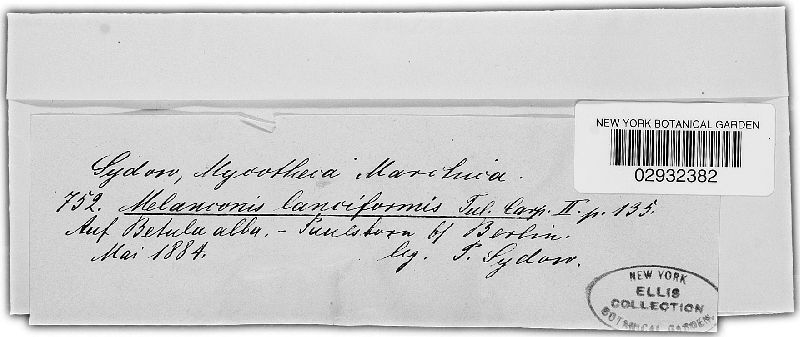 NEW YORK BOTANICAL GARDEN
02932382
Sydow, Mycotheca Marchica.
752. Melanconis lanciformis Tul. Carp. II. p. 135.
Auf Betula alba. - Paulsborn bf Berlin.
Mai 1884. leg. P. Sydow.
NEW YORK
ELLIS
COLLECTION
BOTANICAL GARDEN.